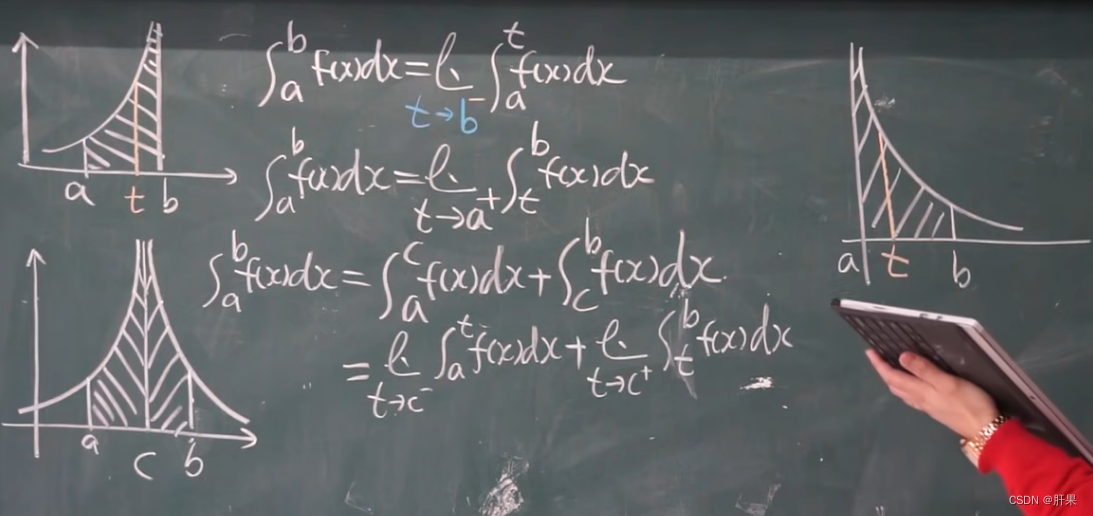 ∫_a^b f(x)dx = lim_{t→b⁻} ∫_a^t f(x)dx
a t b
∫_a^b f(x)dx = lim_{t→a⁺} ∫_t^b f(x)dx
∫_a^b f(x)dx = ∫_a^c f(x)dx + ∫_c^b f(x)dx
a t b
= lim_{t→c⁻} ∫_a^t f(x)dx + lim_{t→c⁺} ∫_t^b f(x)dx
a c b
CSDN @肝果